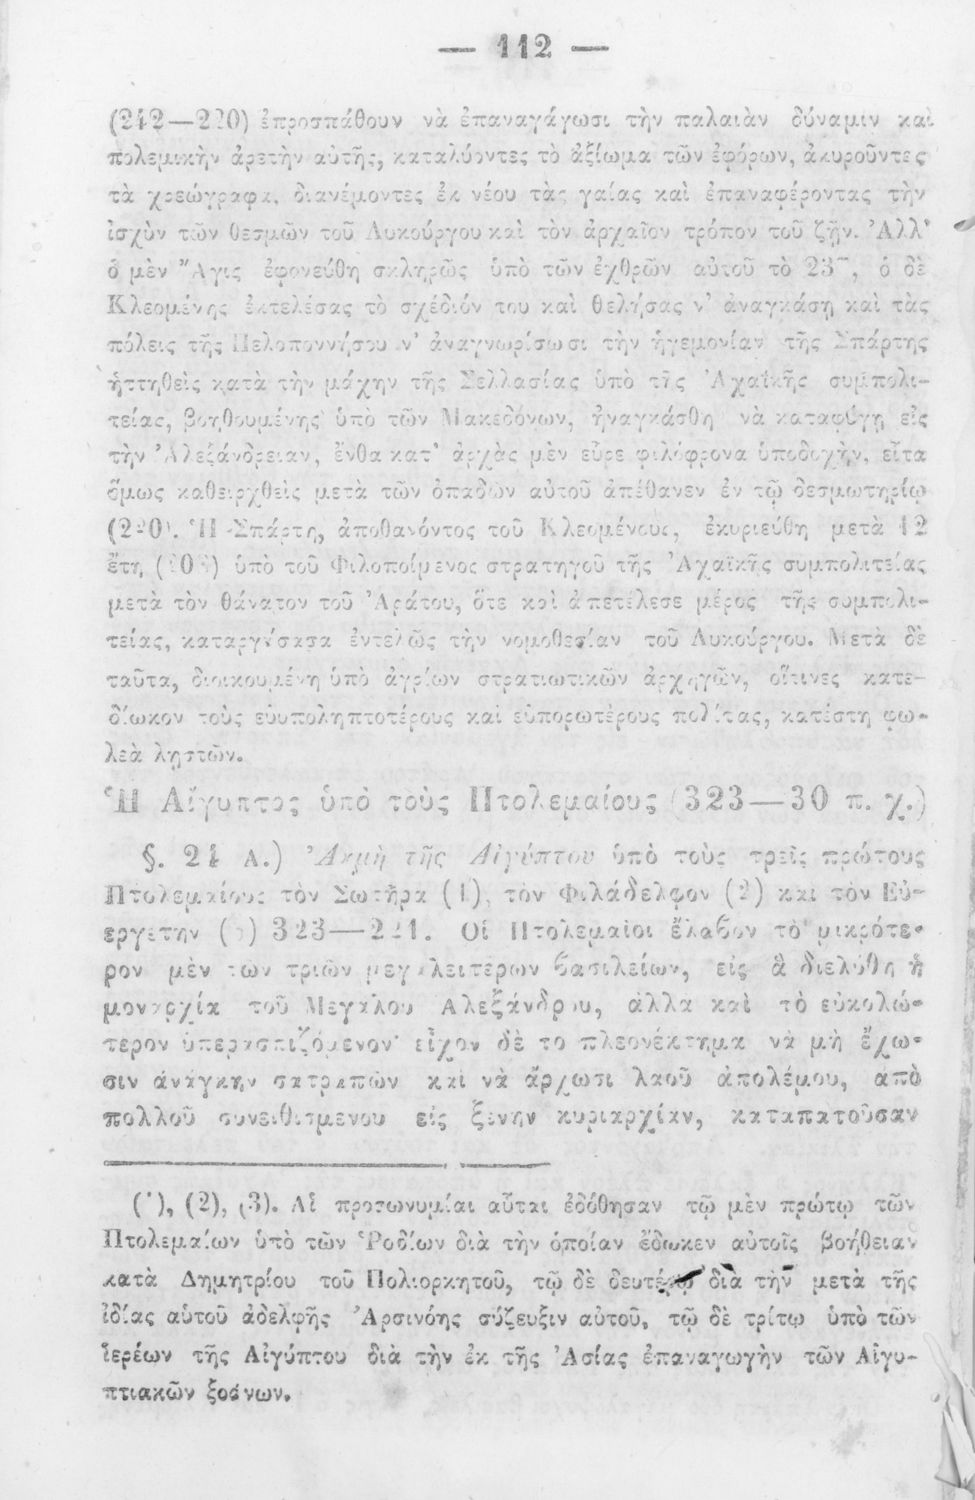 — 112 —
(242—220) ἐπροσπάθουν νὰ ἐπαναγάγωσι τὴν παλαιὰν δύναμιν καὶ
πολεμικὴν ἀρετὴν αὐτῆς, καταλύοντες τὸ ἀξίωμα τῶν ἐφόρων, ἀκυροῦντες
τὰ χρεώγραφα, διανέμοντες ἐκ νέου τὰς γαίας καὶ ἐπαναφέροντας τὴν
ἰσχὺν τῶν θεσμῶν τοῦ Λυκούργου καὶ τὸν ἀρχαῖον τρόπον τοῦ ζῇν. Ἀλλ'
ὁ μὲν Ἄγις ἐφονεύθη σκληρῶς ὑπὸ τῶν ἐχθρῶν αὐτοῦ τὸ ὁ δὲ
Κλεομένης ἐκτελέσας τὸ σχέδιόν του καὶ θελήσας ν' ἀναγκάσῃ καὶ τὰς
πόλεις τῆς Πελοποννήσου ν' ἀναγνωρίσωσι τὴν ἡγεμονίαν τῆς Σπάρτης
ἡττηθεὶς κατὰ τὴν μάχην τῆς Σελλασίας ὑπὸ τῆς Ἀχαϊκῆς συμπολι-
τείας, βοηθουμένης ὑπὸ τῶν Μακεδόνων, ἠναγκάσθη νὰ καταφύγῃ εἰς
τὴν Ἀλεξάνδρειαν, ἔνθα κατ' ἀρχὰς μὲν εὗρε φιλόφρονα ὑποδοχὴν, εἶτα
ὅμως καθειρχθεὶς μετὰ τῶν ὀπαδῶν αὐτοῦ ἀπέθανεν ἐν τῷ δεσμωτηρίῳ
(220). Ἡ Σπάρτη, ἀποθανόντος τοῦ Κλεομένους, ἐκυριεύθη μετὰ 12
ἔτη ὑπὸ τοῦ Φιλοποίμενος στρατηγοῦ τῆς Ἀχαϊκῆς συμπολιτείας
μετὰ τὸν θάνατον τοῦ Ἀράτου, ὅτε καὶ ἀπετέλεσε μέρος τῆς συμπολι-
τείας, καταργήσασα ἐντελῶς τὴν νομοθεσίαν τοῦ Λυκούργου. Μετὰ δὲ
ταῦτα, διοικουμένη ὑπὸ ἀγρίων στρατιωτικῶν ἀρχηγῶν, οἵτινες κατε-
δίωκον τοὺς εὐυποληπτοτέρους καὶ εὐπορωτέρους πολίτας, κατέστη φω-
λεὰ λῃστῶν.
Ἡ Αἴγυπτος ὑπὸ τοὺς Πτολεμαίους (323—30 π. χ.)
§. 21 Α.) Ἀκμὴ τῆς Αἰγύπτου ὑπὸ τοὺς τρεῖς πρώτους
Πτολεμαίους τὸν Σωτῆρα (1), τὸν Φιλάδελφον (2) καὶ τὸν Εὐ-
εργέτην (3) 323—221. Οἱ Πτολεμαῖοι ἔλαβον τὸ μικρότε-
ρον μὲν τῶν τριῶν μεγαλειτέρων βασιλείων, εἰς ἃ διελύθη ἡ
μοναρχία τοῦ Μεγάλου Αλεξάνδρου, ἀλλὰ καὶ τὸ εὐκολώ-
τερον ὑπερασπιζόμενον· εἶχον δὲ τὸ πλεονέκτημα νὰ μὴ ἔχω-
σιν ἀνάγκην σατραπῶν καὶ νὰ ἄρχωσι λαοῦ ἀπολέμου, ἀπὸ
πολλοῦ συνειθισμένου εἰς ξένην κυριαρχίαν, καταπατοῦσαν
(1), (2), (3). Αἱ προσωνυμίαι αὗται ἐδόθησαν τῷ μὲν πρώτῳ τῶν
Πτολεμαίων ὑπὸ τῶν Ῥοδίων διὰ τὴν ὁποίαν ἔδωκεν αὐτοῖς βοήθειαν
κατὰ Δημητρίου τοῦ Πολιορκητοῦ, τῷ δὲ δευτέρῳ διὰ τὴν μετὰ τῆς
ἰδίας αὑτοῦ ἀδελφῆς Ἀρσινόης σύζευξιν αὐτοῦ, τῷ δὲ τρίτῳ ὑπὸ τῶν
ἱερέων τῆς Αἰγύπτου διὰ τὴν ἐκ τῆς Ἀσίας ἐπαναγωγὴν τῶν Αἰγυ-
πτιακῶν ξοάνων.